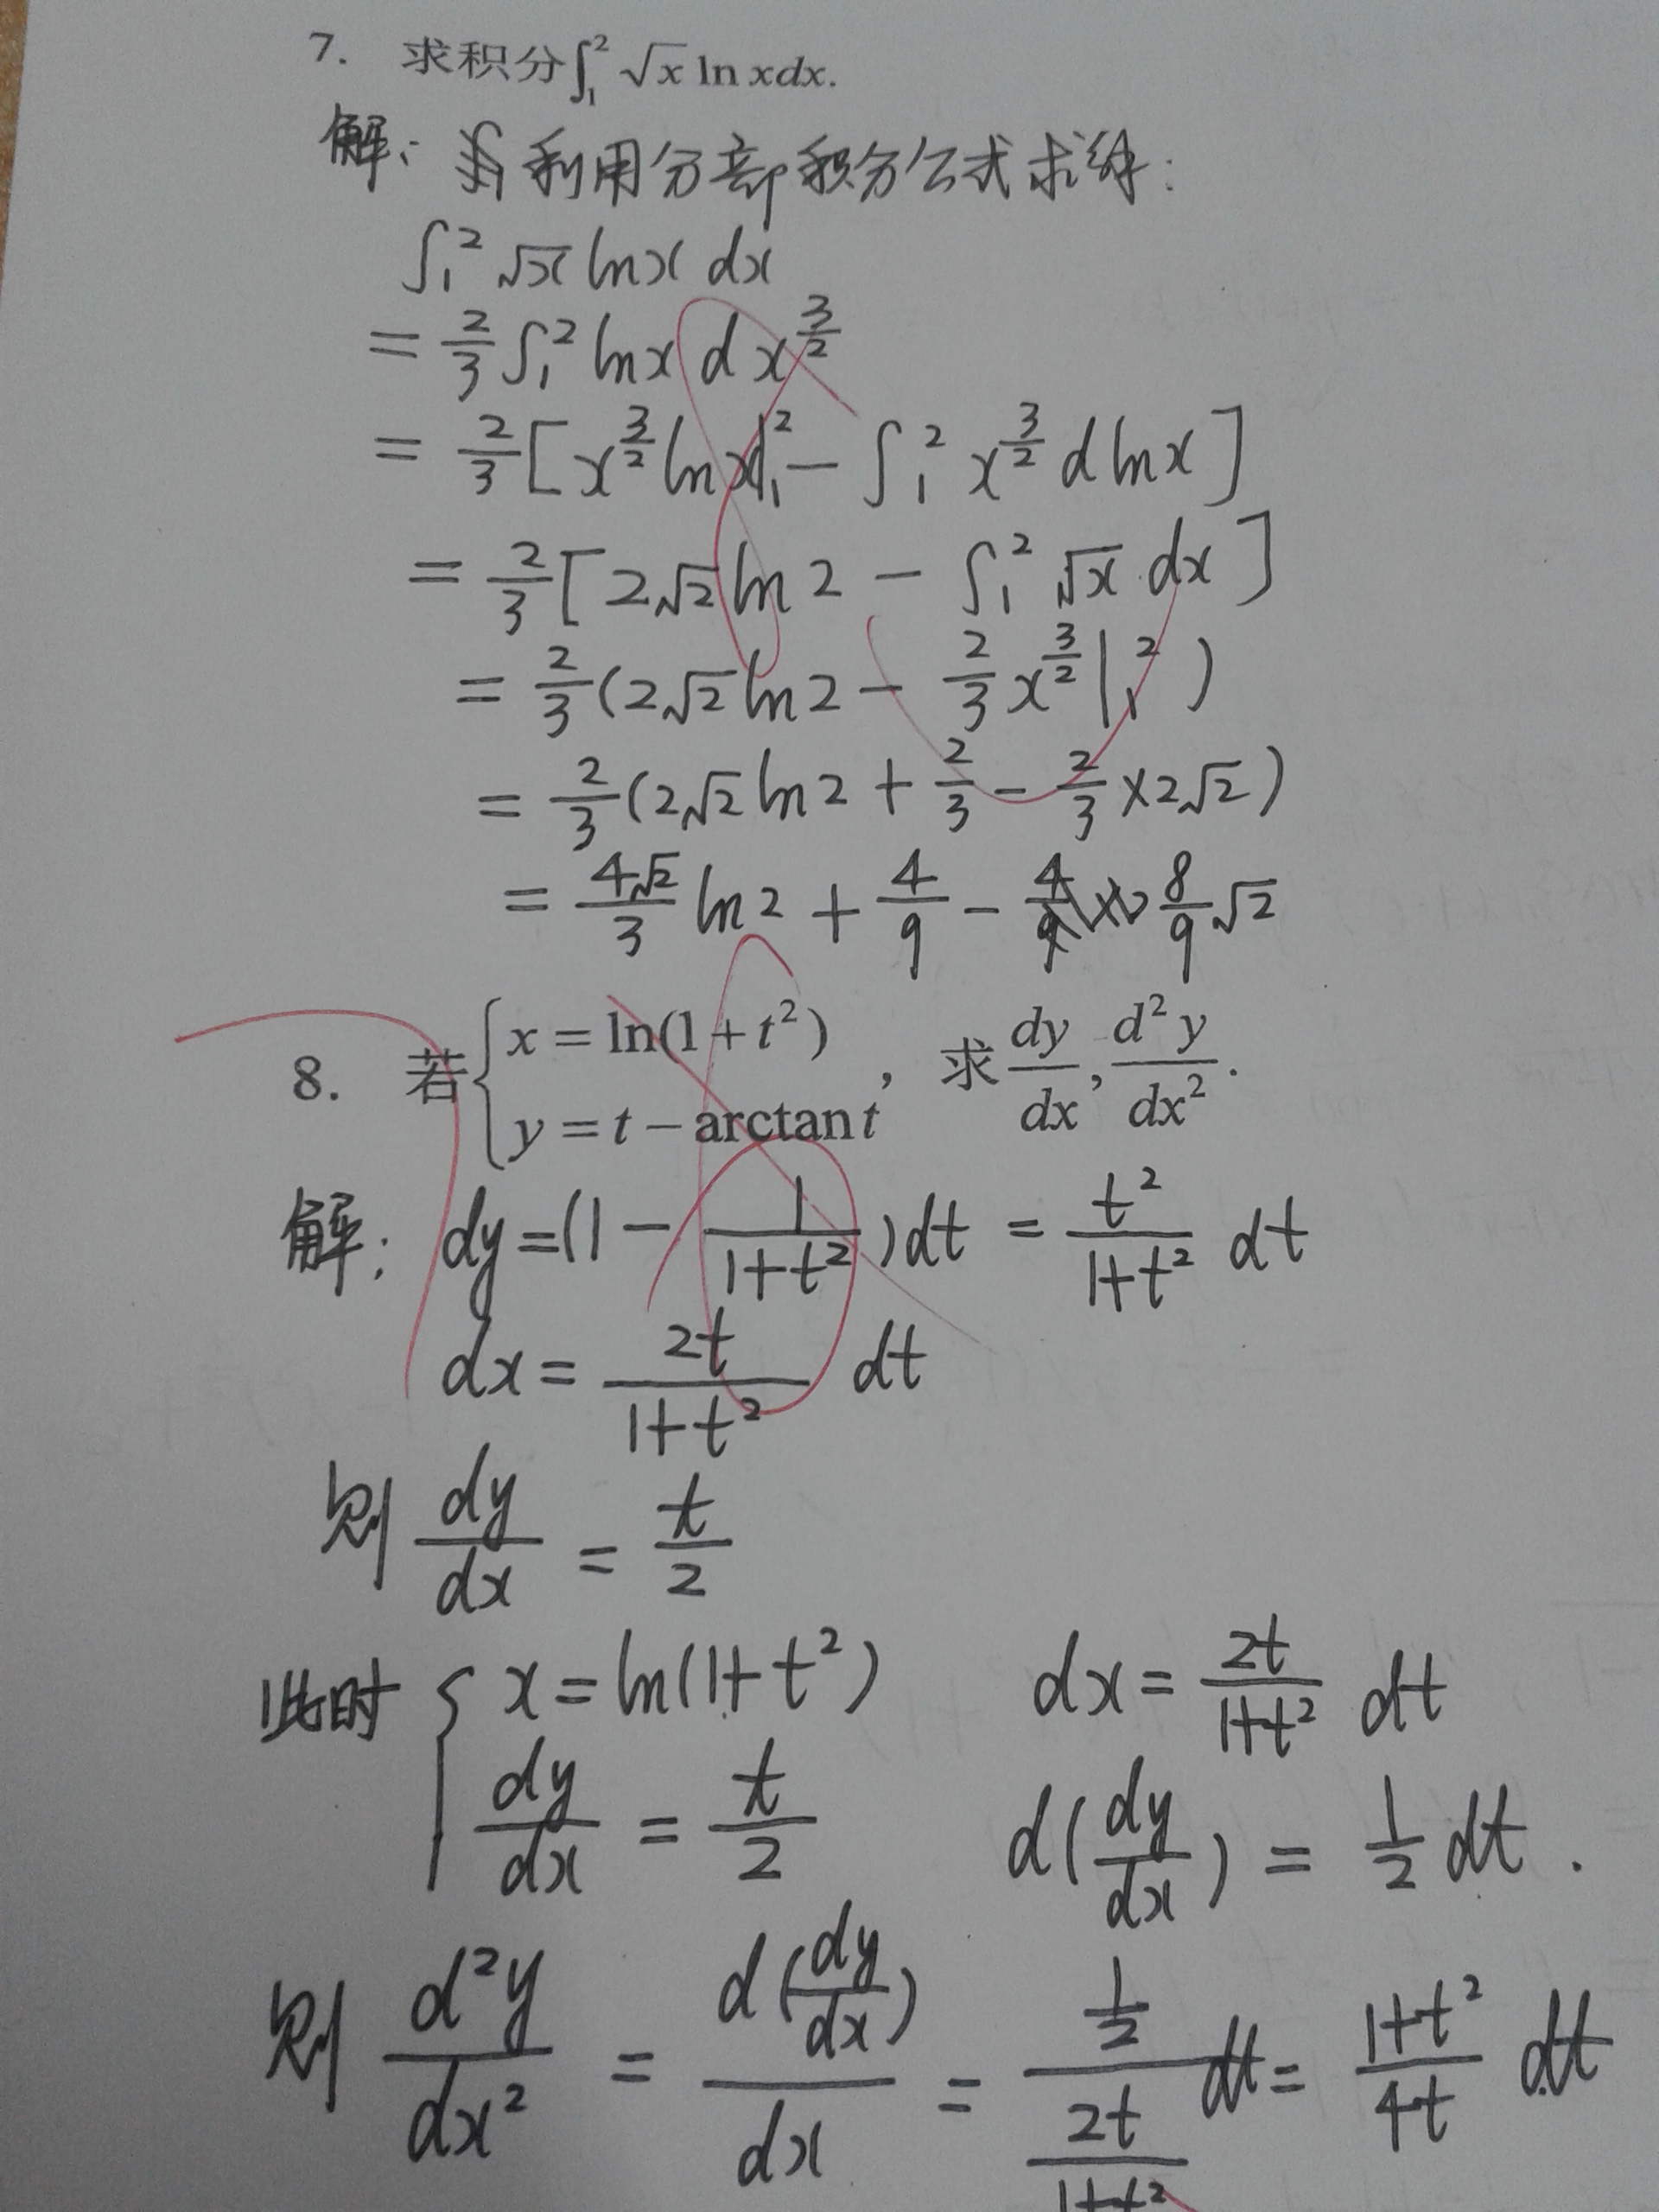 7. 求积分∫₁² √x ln xdx.
解: 利用分部积分公式求解:
∫₁² √x lnx dx
= 2/3 ∫₁² lnx d x^(3/2)
= 2/3 [x^(3/2) lnx|₁² − ∫₁² x^(3/2) d lnx]
= 2/3 [2√2 ln2 − ∫₁² √x dx]
= 2/3 (2√2 ln2 − 2/3 x^(3/2)|₁²)
= 2/3 (2√2 ln2 + 2/3 − 2/3 ×2√2)
= 4√2/3 ln2 + 4/9 − 8/9 √2
8. 若{x = ln(1+t²) y = t − arctan t, 求 dy/dx, d²y/dx².
解: dy=(1 − 1/(1+t²))dt = t²/(1+t²) dt
dx = 2t/(1+t²) dt
则 dy/dx = t/2
此时 { x = ln(1+t²) dx = 2t/(1+t²) dt
dy/dx = t/2 d(dy/dx) = 1/2 dt.
则 d²y/dx² = d(dy/dx)/dx = (1/2)/(2t/(1+t²)) dt = (1+t²)/4t dt